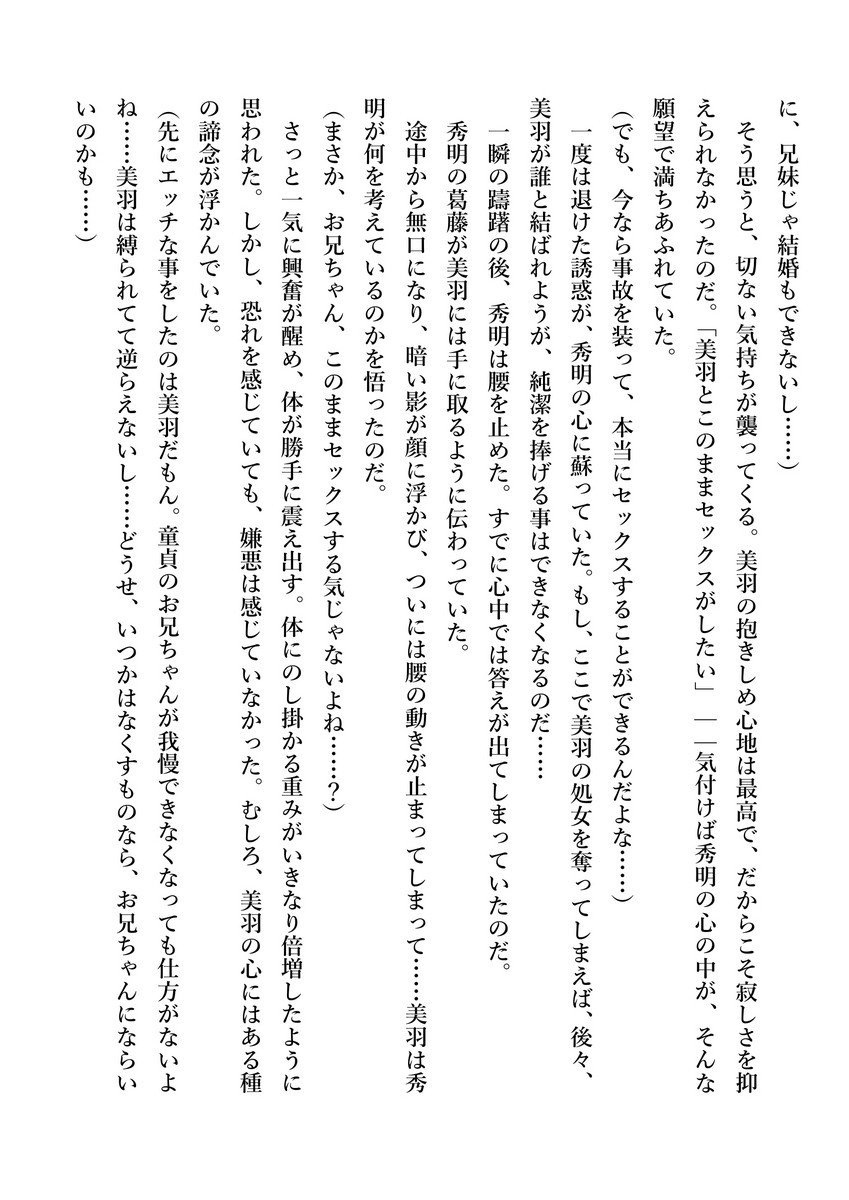 に、兄妹じゃ結婚もできないし……)
そう思うと、切ない気持ちが襲ってくる。美羽の抱きしめ心地は最高で、だからこそ寂しさを抑
えられなかったのだ。「美羽とこのままセックスがしたい」――気付けば秀明の心の中が、そんな
願望で満ちあふれていた。
(でも、今なら事故を装って、本当にセックスすることができるんだよな……)
一度は退けた誘惑が、秀明の心に蘇っていた。もし、ここで美羽の処女を奪ってしまえば、後々、
美羽が誰と結ばれようが、純潔を捧げる事はできなくなるのだ……
一瞬の躊躇の後、秀明は腰を止めた。すでに心中では答えが出てしまっていたのだ。
秀明の葛藤が美羽には手に取るように伝わっていた。
途中から無口になり、暗い影が顔に浮かび、ついには腰の動きが止まってしまって……美羽は秀
明が何を考えているのかを悟ったのだ。
(まさか、お兄ちゃん、このままセックスする気じゃないよね……?)
さっと一気に興奮が醒め、体が勝手に震え出す。体にのし掛かる重みがいきなり倍増したように
思われた。しかし、恐れを感じていても、嫌悪は感じていなかった。むしろ、美羽の心にはある種
の諦念が浮かんでいた。
(先にエッチな事をしたのは美羽だもん。童貞のお兄ちゃんが我慢できなくなっても仕方がないよ
ね……美羽は縛られてて逆らえないし……どうせ、いつかはなくすものなら、お兄ちゃんにならい
いのかも……)